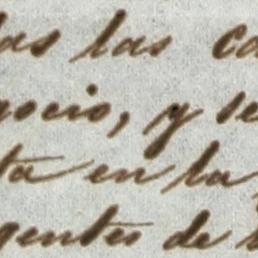 las las ca
gocio, y se
ta en la
gentes de